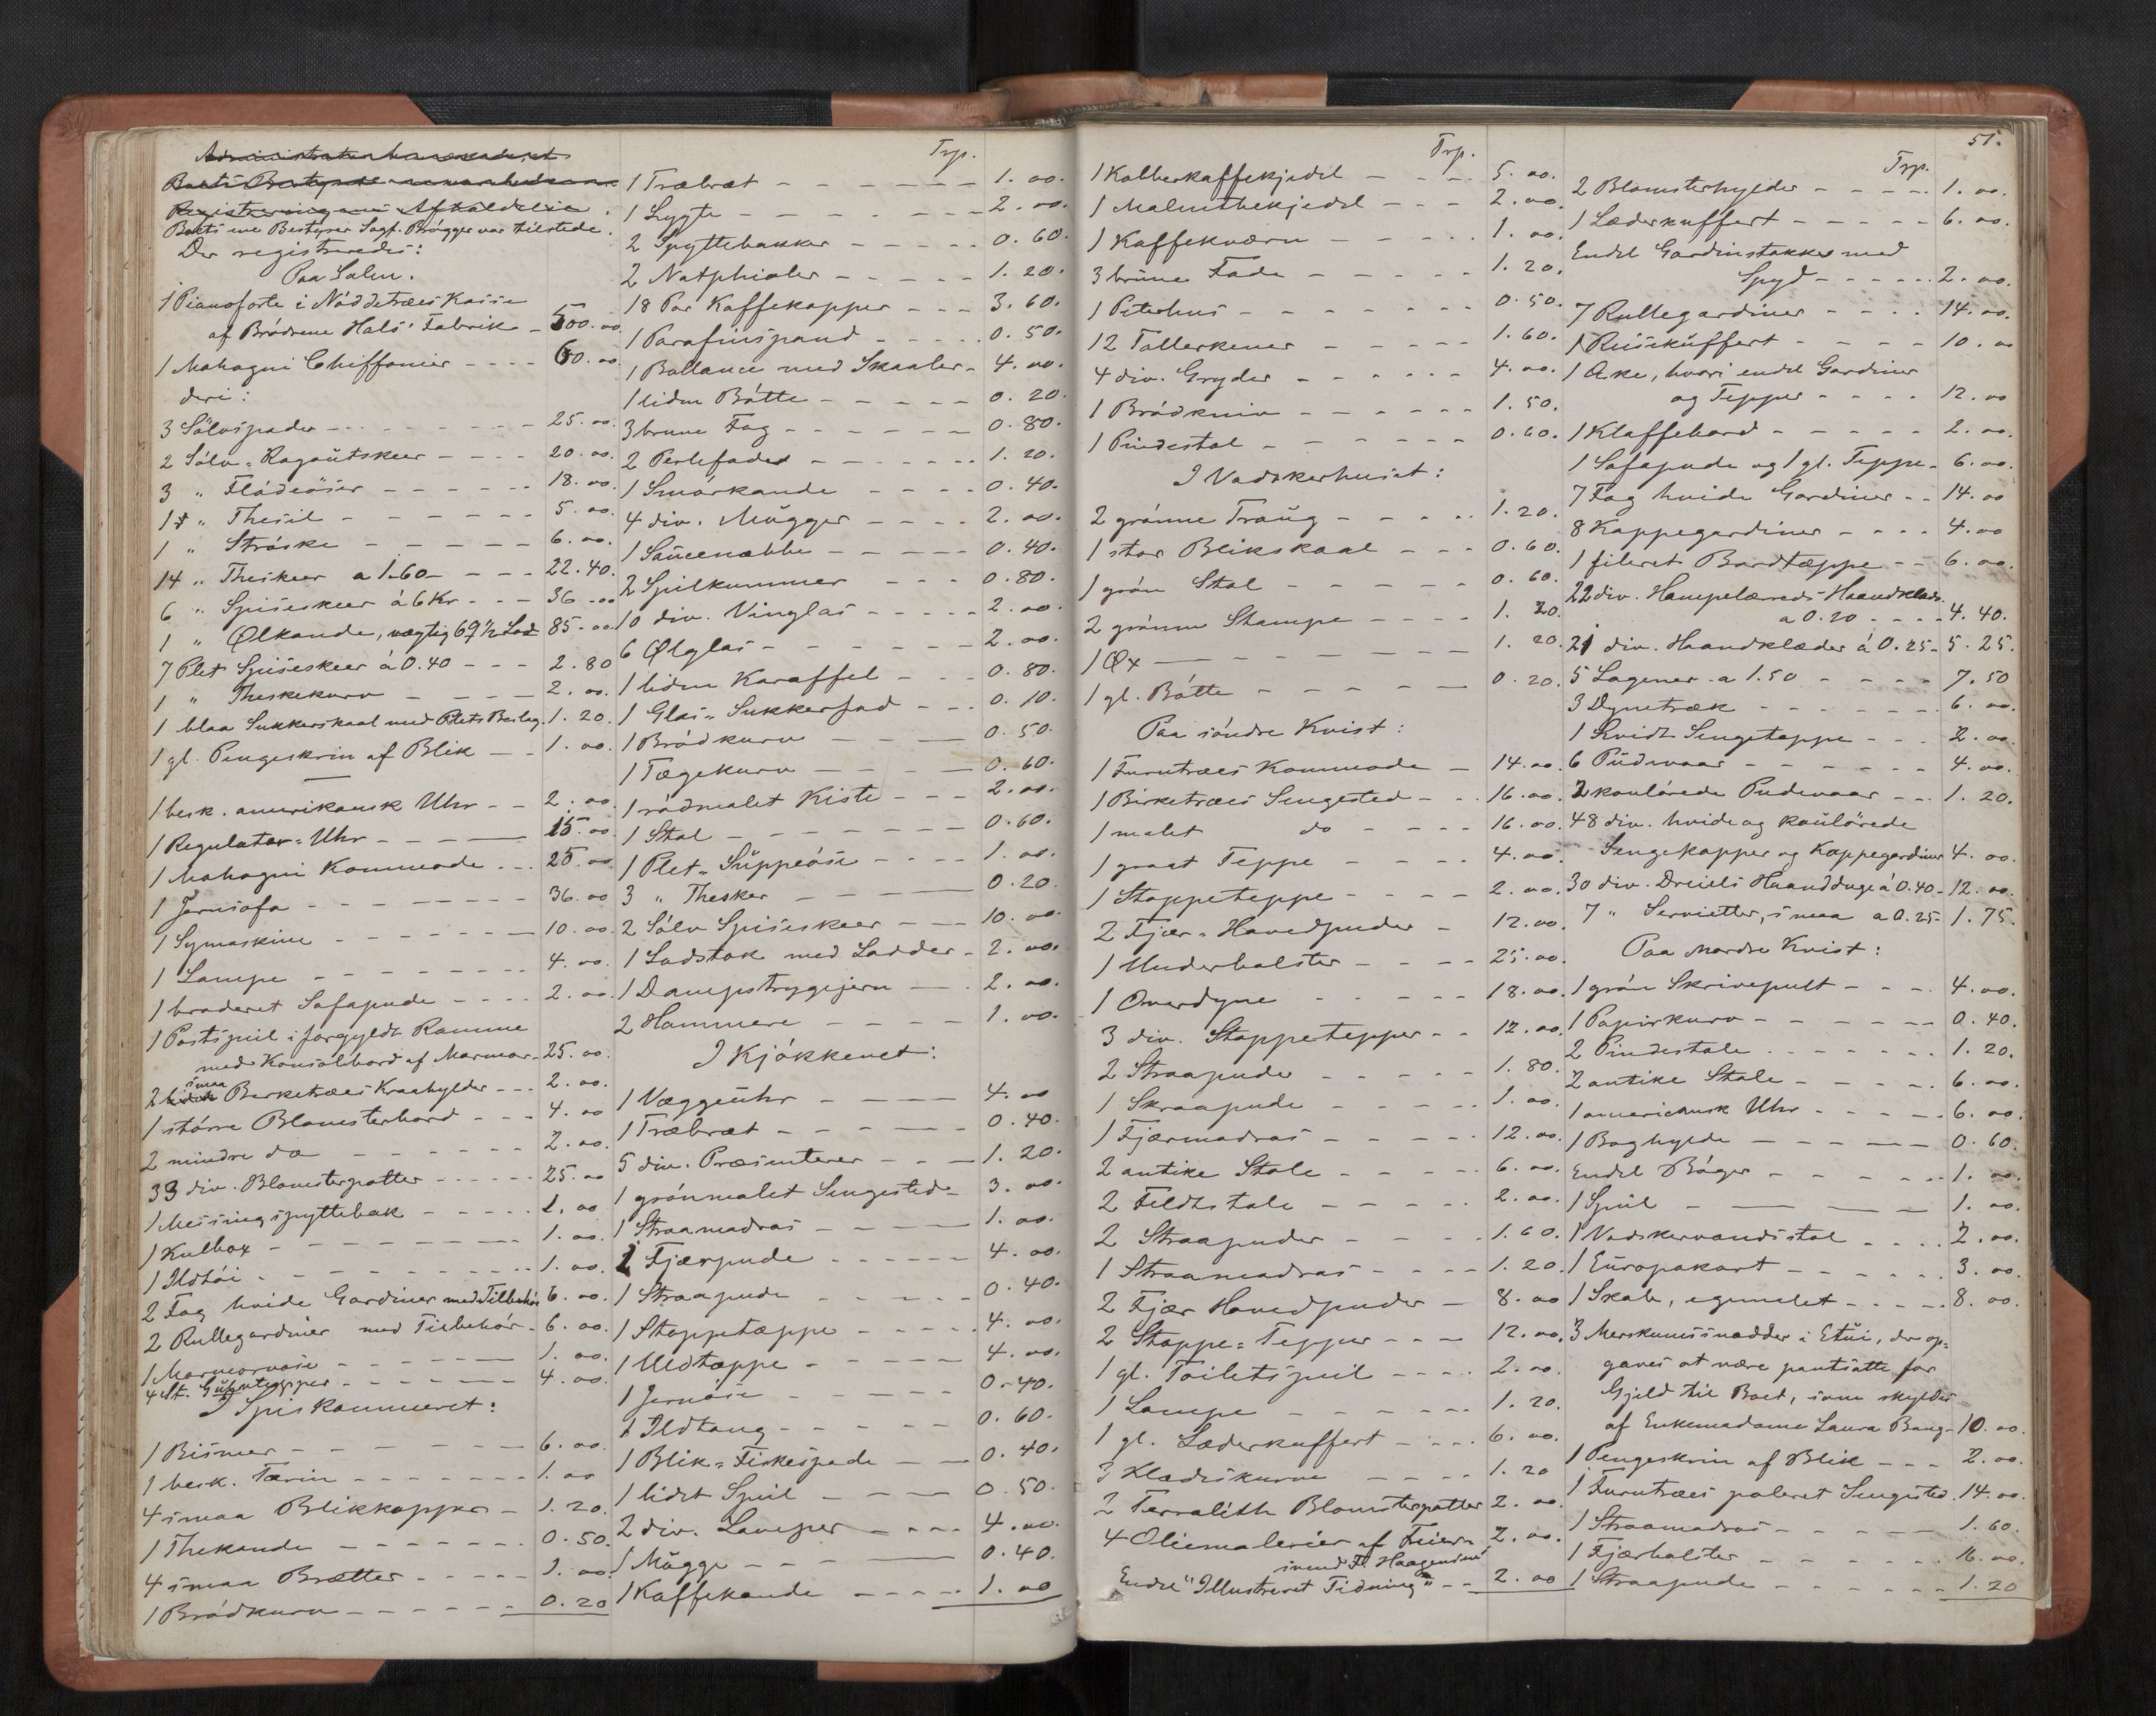 Boets ene Bestyrer Sagf. Brøgger var tilstede.
Der registreredes:
Paa Salen.
1 Pianoforte i Nøddetræes Kasse
af Brødrene Hals' Fabrik - 500.00
1 Mahagni Chiffonier - - - - 60.00
deri:
3 Sølvspader - - - 25.00
2 Sølv-Ragoutskeer - - - - 20.00
3 " Flødeøser - - - - 18.00
1 " Thesil - - - - 5.00
1 " Strøske - - - - 6.00
14 " Theskeer a 1.60 - - - 22.40
6 " Spiseskeer á 6 Kr - - - 36.00
1 " Ølkande, vægtig 69 1/2 Lod 85.00
7 Plet Spiseskeer á 0.40 - - - 2.80
1 " Theskekurv - - - 2.00
1 blaa Sukkerskaal med Plets Beslag. 1.20
1 gl. Pengeskrin af Blik - - 1.00
1 besk. amerikansk Uhr - - 2.00
1 Regulator-Uhr - - - 15.00
1 Mahagni Kommode - - - 25.00
1 Jernsofa - - - - 36.00
1 Symaskine - - - - 10.00
1 Lampe - - - - 4.00
1 broderet Sofapude - - - - 2.00
1 Postspeil i forgyldt Ramme
med Konsolbord af Marmor - 25.00
2 smaa Berketræes Kraahylder - - - 2.00
1 større Blomsterbord - - - 4.00
2 mindre do - - - - 2.00
33 div. Blomsterpotter - - - - 25.00
1 Messingspyttebak - - - - 1.00
1 Kulbox - - - - 1.00
1 Ildtøi - - - - 1.00
2 Fag hvide Gardiner med Tilbehør 6.00
2 Rullegardiner med Tilbehør - 6.00
1 Marmorvase - - - - 1.00
4 St. Gulvtepper - - - - 4.00
I Spiskammeret:
1 Bismer - - - - 6.00
1 besk. Terrin - - - - 1.00
4 smaa Blikkopper - 1.20
1 Thekande - - - - 0.50
4 smaa Brætter - - - - 1.00
1 Brødkurv - - - - 0.20
Trp.
1 Træbræt - - - - 1.00.
1 Lygte - - - - 2.00.
2 Spyttebakker - - - - 0.60.
2 Natphioler - - - - 1.20.
18 Par Kaffekopper - - - 3.60.
1 Parafinspand - - - - 0.50.
1 Ballance med Skaaler - 4.00.
1 liden Bøtte - - - - 0.20.
3 brune Fag - - - - 0.80.
2 Perlefader - - - - 1.20.
1 Smørkande - - - - 0.40.
4 div. Mugger - - - - 2.00.
1 Saucenæbbe - - - - 0.40.
2 Spilkummer - - - - 0.80.
10 div. Vinglas - - - - 2.00.
6 Ølglas - - - - 2.00.
1 liden Karaffel - - - 0.80.
1 Glas-Sukkerfad - - - 0.10.
1 Brødkurv - - - - 0.50.
1 Tægekurv - - - - 0.60.
1 rødmalet Kiste - - - 2.00.
1 Stol - - - - 0.60.
1 Plet-Suppeøse - - - - 1.00.
3 " Thesker - - - 0.20
2 Sølv Spiseskeer - - - - 10.00
1 Ladstok med Lodder - 2.00.
1 Dampstrygejern - - - 2.00.
2 Hammere - - - - 1.00.
I Kjøkkenet:
1 Væggeuhr - - - - 4.00
1 Træbræt - - - - 0.40.
5 div. Præsenterer - - - 1.20.
1 grønmalet Sengested - 3.00.
1 Straamadras - - - - 1.00.
1 Fjærpude - - - - 4.00.
1 Straapude - - - - 0.40.
1 Stoppetæppe - - - - 4.00.
1 Uldtæppe - - - - 4.00.
1 Jernøse - - - - 0.40.
1 Ildtang - - - - 0.60.
1 Blik-Fiskespade - - 0.40.
1 lidet Speil - - - - 0.50.
2 div. Lamper - - - - 4.00.
1 Mugge - - - - 0.40.
1 Kaffekande - - - - 1.00
51.
Trp.
1 Kobberkaffekjedel - - - 5.00.
1 Malmthekjedel - - - 2.00.
1 Kaffekværn - - - - 1.00.
3 brune Fade - - - - 1.20.
1 Peterhus - - - - 0.50.
12 Tallerkener - - - - 1.60.
4 div. Gryder - - - - 4.00.
1 Brødkniv - - - - 1.50.
1 Pindestol - - - - 0.60.
I Vadskerhuset:
2 grønne Traug - - - - 1.20.
1 stor Blikskaal - - - 0.60.
1 grøn Stol - - - - 0.60.
2 grønne Stampe - - - - 1.20.
1 Øx - - - - 1.20.
1 gl. Bøtte - - - - 0.20.
Paa søndre Kvist:
1 Furutræes Kommode - 14.00.
1 Birketræes Sengested - - 16.00.
1 malet do - - - - 16.00.
1 graat Teppe - - - - 4.00.
1 Stoppeteppe - - - - 2.00.
2 Fjær-Hovedpuder - 12.00.
1 Underbolster - - - - 25.00.
1 Overdyne - - - - 18.00.
3 div. Stoppetepper - - 12.00.
2 Straapuder - - - - 1.80.
1 Skraapude - - - - 1.00.
1 Fjærmadras - - - - 12.00.
2 antike Stole - - - - 6.00.
2 Feldtstole - - - - 2.00.
2 Straapuder - - - - 1.60.
1 Straamadras - - - - 1.20.
2 Fjær Hovedpuder - 8.00
2 Stoppe-Tepper - - - 12.00.
1 gl. Toiletspeil - - - - 2.00.
1 Lampe - - - - 1.20.
1 gl. Læderkuffert - - - - 6.00.
3 Klædeskurve - - - - 1.20
2 Terralith Blomsterpotter 2.00.
4 Oliemalerier af 2.00.
Endel "Illustreret Tidning" - - 2.00
Trp.
2 Blomsterhylder - - - - 1.00.
1 Læderkuffert - - - - 6.00.
Endel Gardinstokker med
Spyd - - - - 2.00.
7 Rullegardiner - - - - 14.00.
1 Reisekuffert - - - - 10.00
1 Æske, hvori endel Gardiner
og Tepper - - - - 12.00
1 Klaffebord - - - - 2.00.
1 Sofapude og 1 gl. Teppe - 6.00.
7 Fag hvide Gardiner - - 14.00
8 Kappegardiner - - - - 4.00
1 fileret Bordtæppe - - 6.00.
22 div. Hampelærreds Haandklæd.
a 0.20 - - - - 4.40.
21 div. Haandklæder á 0.25 - 5.25.
5 Lagener a 1.50 - - - - 7.50
3 Dynetræk - - - - 6.00.
1 hvidt Sengeteppe - - - 2.00.
6 Pudevaar - - - - 4.00.
2 koulørede Pudevaar - - - 1.20.
48 div. hvide og koulørede
Sengekapper og Kappegardiner 4.00.
30 div. Dreiels Haandduge á 0.40 - 12.00.
7 " Servietter, smaa a 0.25 - 1.75.
Paa Nordre Kvist:
1 grøn Skrivepult - - - 4.00.
1 Papirkurv - - - - 0.40.
2 Pindestole - - - - 1.20.
2 antike Stole - - - - 6.00.
1 americansk Uhr - - - - 6.00.
1 Boghylde - - - - 0.60.
Endel Bøger - - - - 1.00.
1 Speil - - - - 1.00.
1 Vadskevandsstol - - - - 2.00.
1 Europakart - - - - 3.00.
1 Skab, egemalet - - - - 8.00.
3 Merskumssnadder i Etui, der op-
gaves at være pantsatte for
Gjeld til Boet, som skyldes
af Enkemadame Laura Bang - 10.00.
1 Pengeskrin af Blik - - - 2.00.
1 Furutræes poleret Sengested. 14.00.
1 Straamadras - - - - 1.60.
1 Fjærbolster - - - - 16.00.
1 Straapude - - - - 1.20